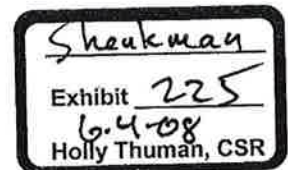 Shenkman
Exhibit 225
6-4-08
Holly Thuman, CSR